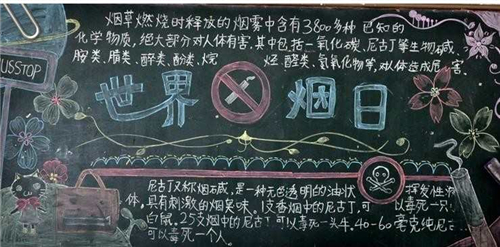 USSTOP
烟草燃烧时释放的烟雾中含有3800多种 已知的
化学物质,绝大部分对人体有害,其中包括一氧化碳、尼古丁等生物碱、
胺类、腈类、醇类、酚类、烷 烃、醛类、氮氧化物等,对人体造成危害。
世界 烟日
尼古丁又称烟碱,是一种无色透明的油状 挥发性
体,具有刺激的烟臭味。1支香烟中的尼古丁可 以毒死一只
白鼠。25支烟中的尼古丁可以毒死一头牛。40-60 毫克纯尼
可以毒死一个人。